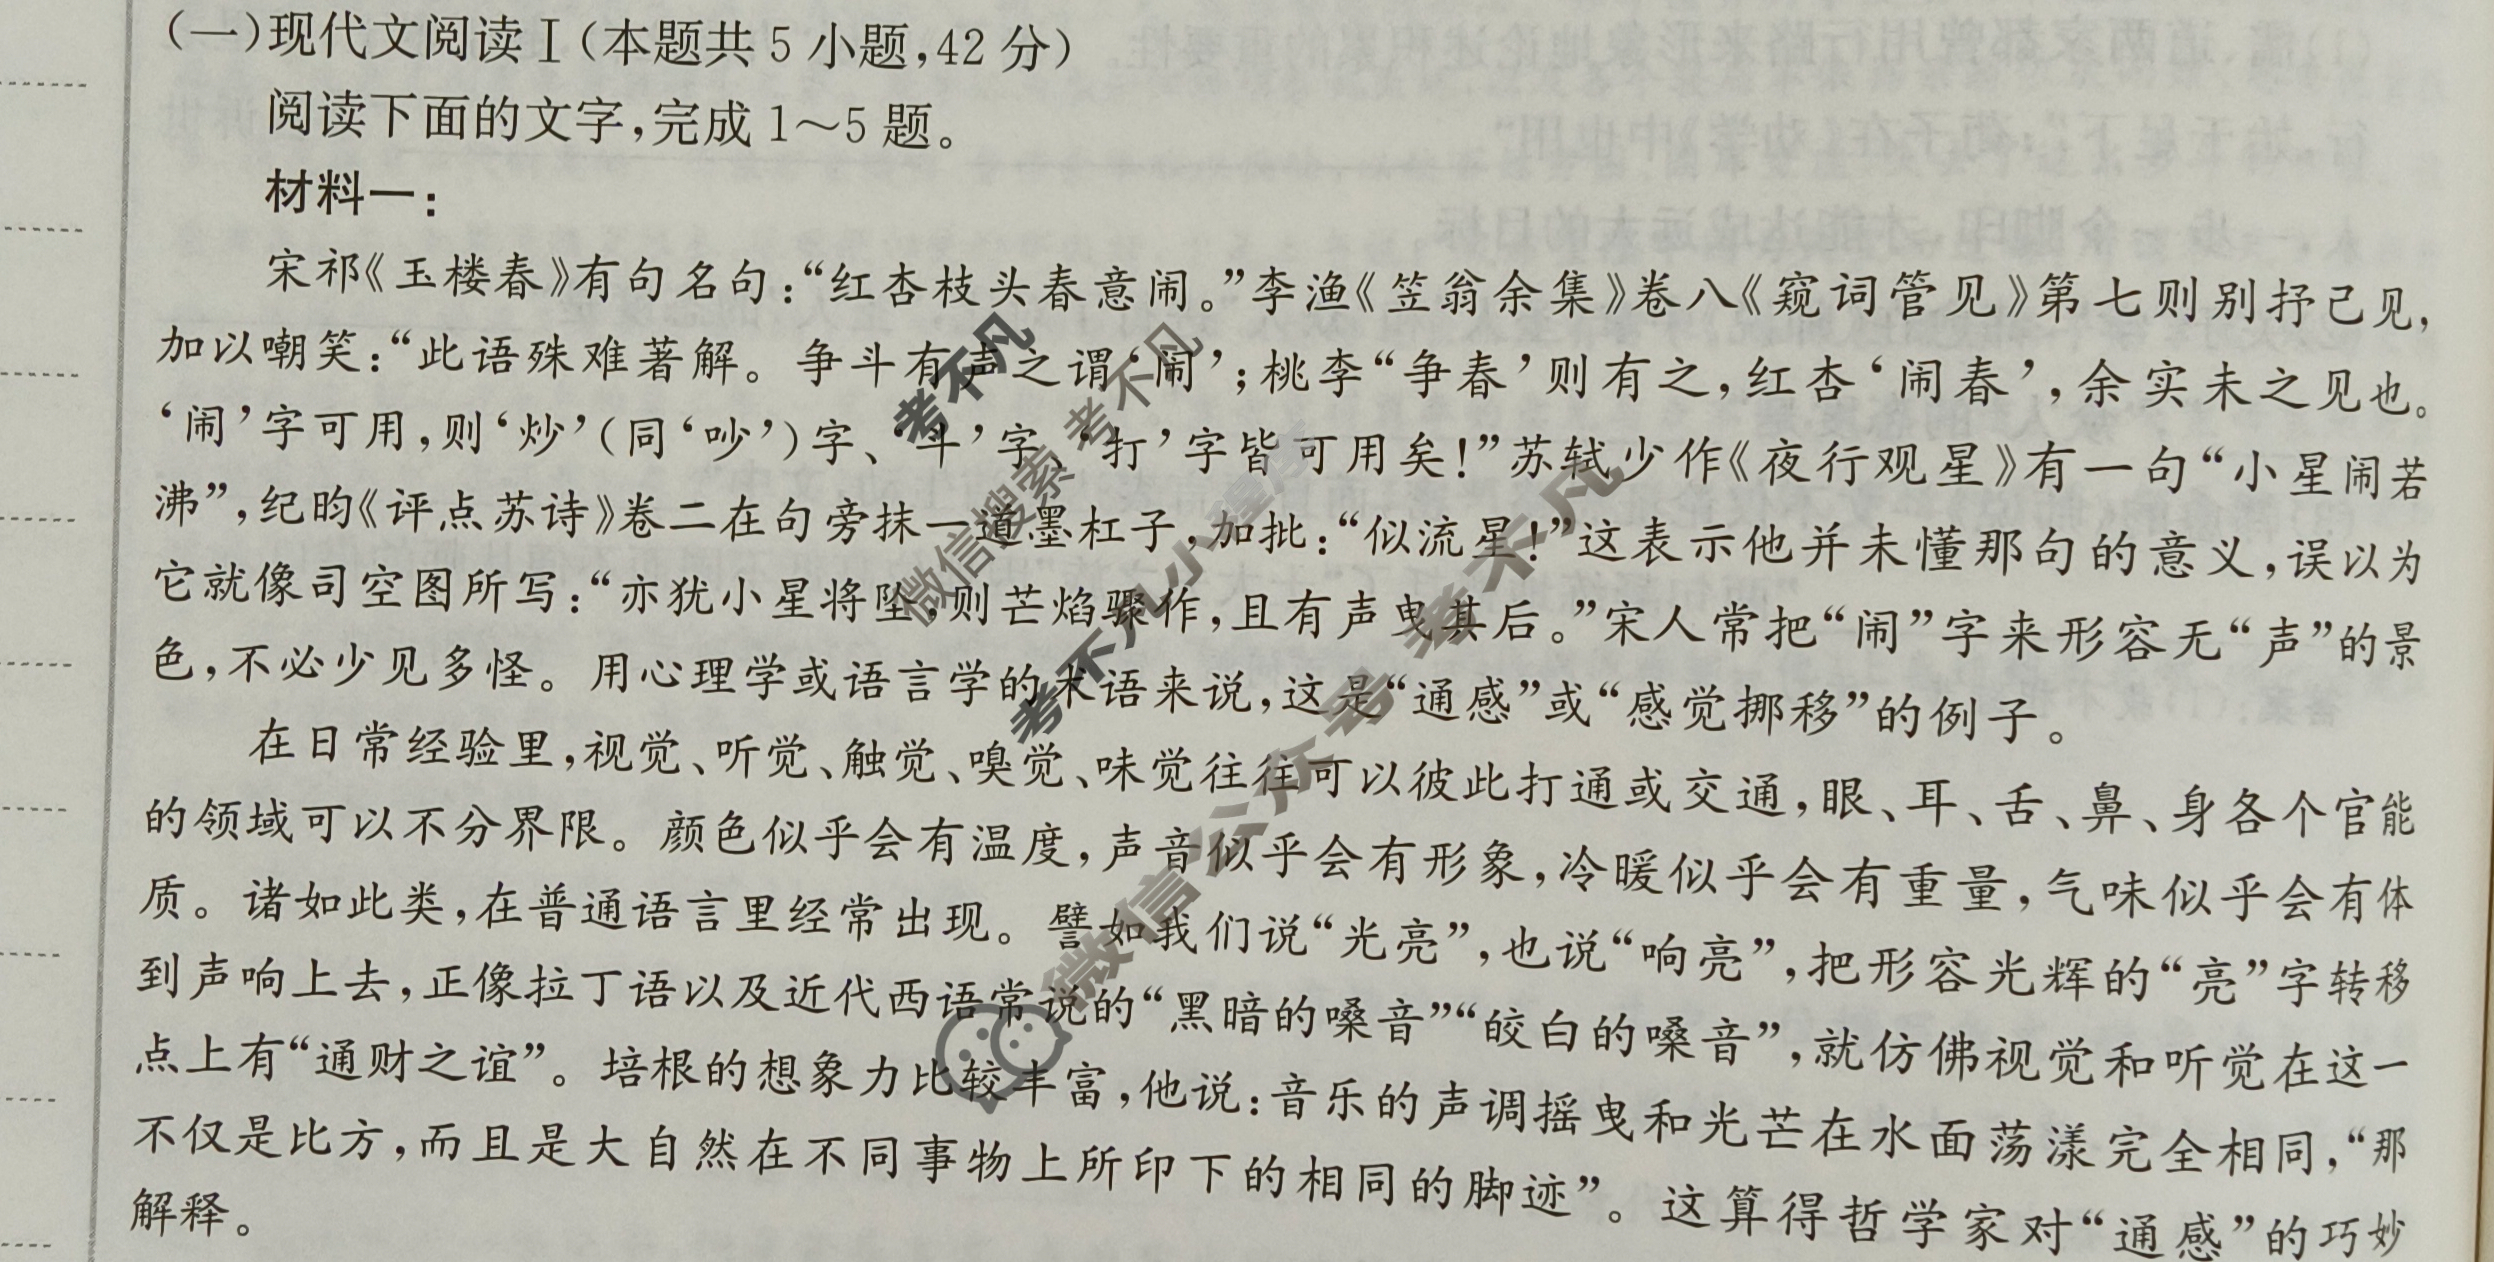 (一)现代文阅读Ⅰ(本题共5小题,42分)
阅读下面的文字,完成1～5题。
材料一:
宋祁《玉楼春》有句名句:“红杏枝头春意闹。”李渔《笠翁余集》卷八《窥词管见》第七则别抒己见,
加以嘲笑:“此语殊难著解。争斗有声之谓‘闹’;桃李“争春’则有之,红杏‘闹春’,余实未之见也。
‘闹’字可用,则‘炒’(同‘吵’)字、‘斗’字、‘打’字皆可用矣!”苏轼少作《夜行观星》有一句“小星闹若
沸”,纪昀《评点苏诗》卷二在句旁抹一道墨杠子,加批:“似流星!”这表示他并未懂那句的意义,误以为
它就像司空图所写:“亦犹小星将坠,则芒焰骤作,且有声曳其后。”宋人常把“闹”字来形容无“声”的景
色,不必少见多怪。用心理学或语言学的术语来说,这是“通感”或“感觉挪移”的例子。
在日常经验里,视觉、听觉、触觉、嗅觉、味觉往往可以彼此打通或交通,眼、耳、舌、鼻、身各个官能
的领域可以不分界限。颜色似乎会有温度,声音似乎会有形象,冷暖似乎会有重量,气味似乎会有体
质。诸如此类,在普通语言里经常出现。譬如我们说“光亮”,也说“响亮”,把形容光辉的“亮”字转移
到声响上去,正像拉丁语以及近代西语常说的“黑暗的嗓音”“皎白的嗓音”,就仿佛视觉和听觉在这一
点上有“通财之谊”。培根的想象力比较丰富,他说:音乐的声调摇曳和光芒在水面荡漾完全相同,“那
不仅是比方,而且是大自然在不同事物上所印下的相同的脚迹”。这算得哲学家对“通感”的巧妙
解释。
考不凡
微信搜索 考不凡
考不凡小程序
微信公众号 考不凡